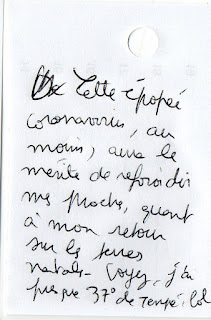 Cette épopée
coronavirus, au
moins, aura le
mérite de refroidir
mes proches, quant
à mon retour
sur les terres
natales - Voyez, j'ai
presque 37° de tempé. lol